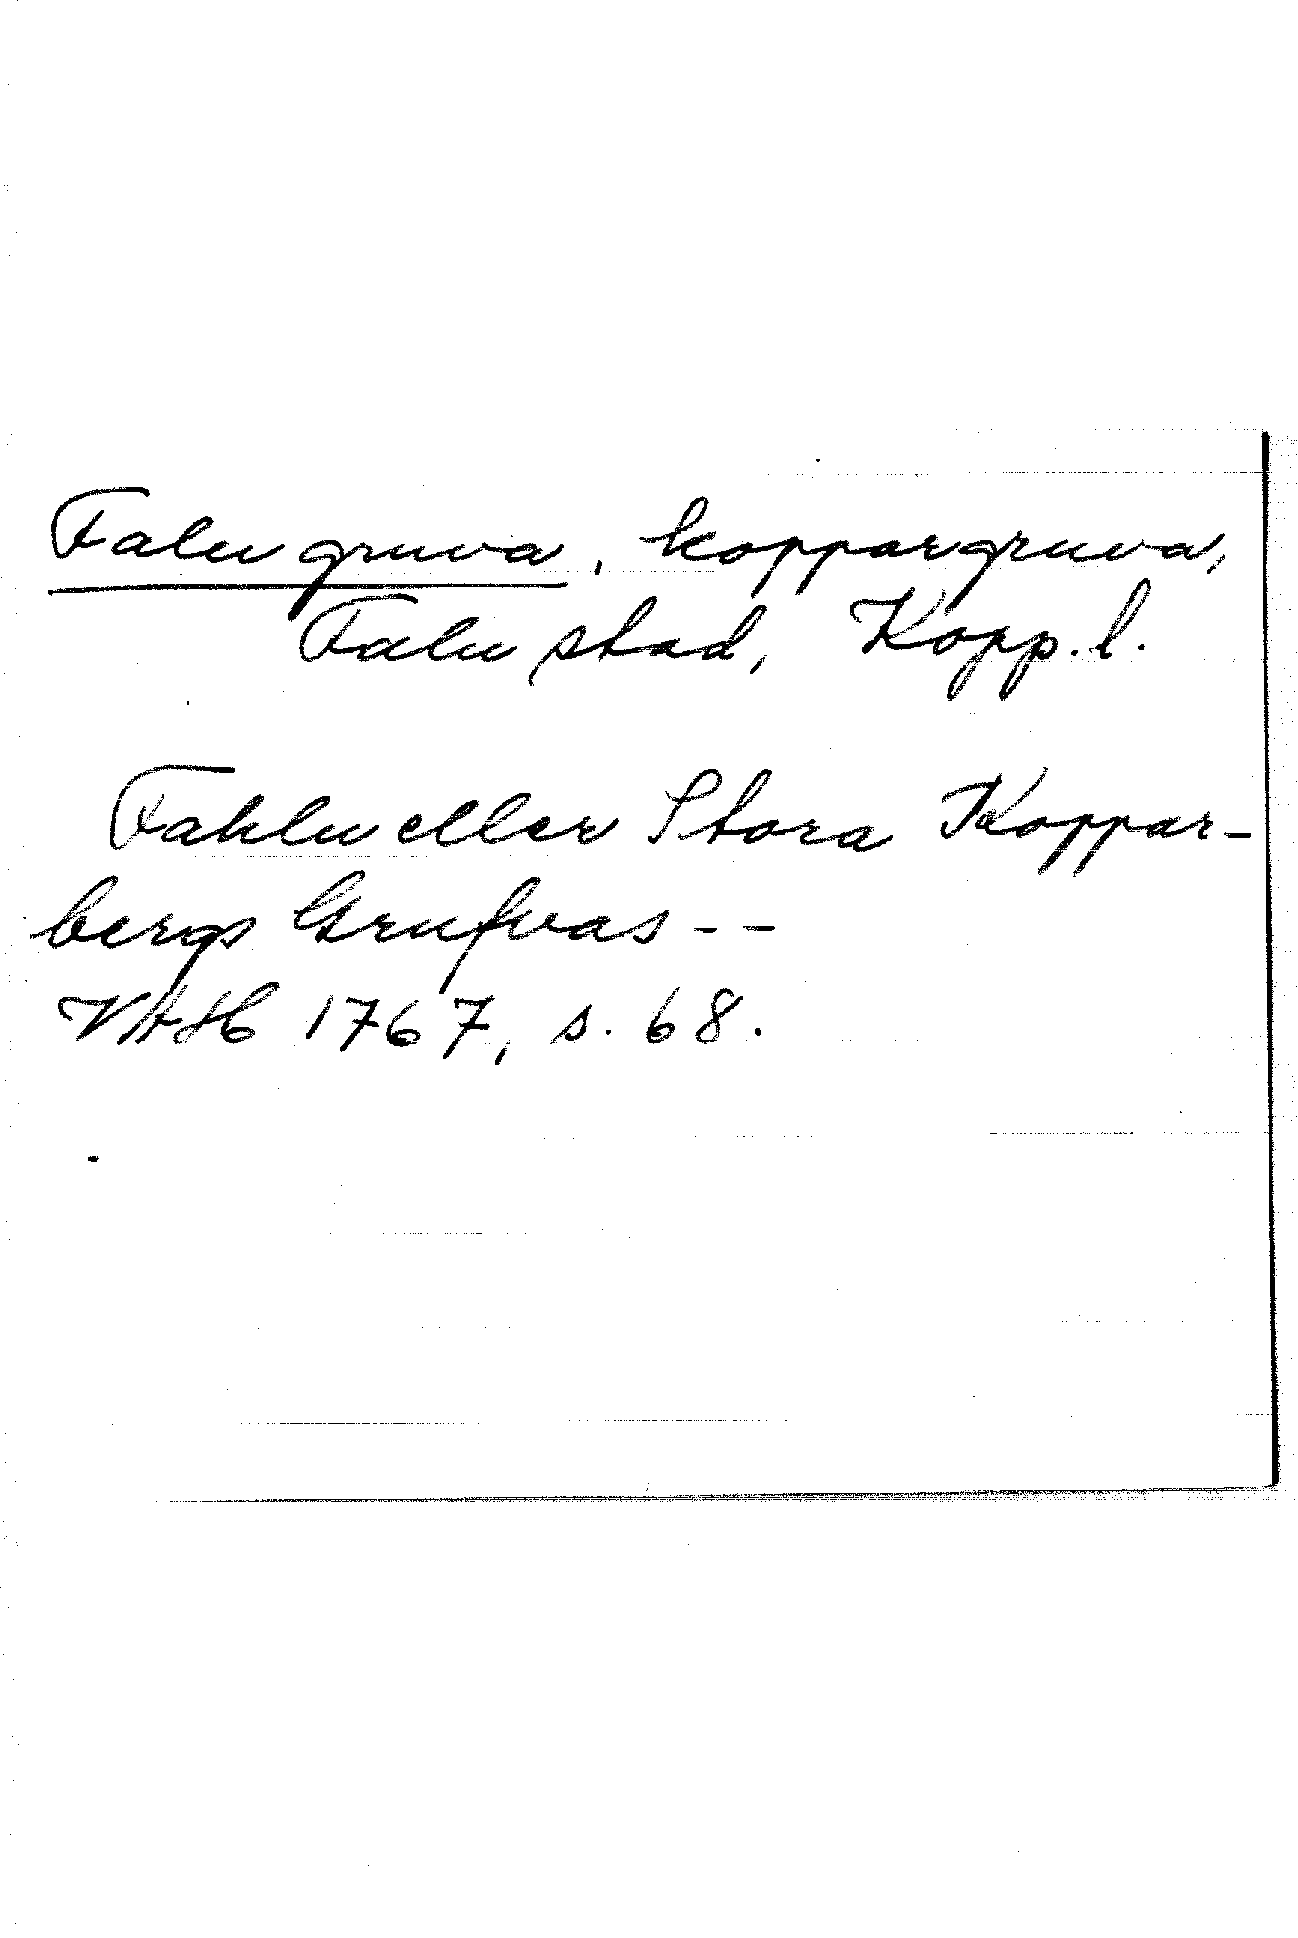 Falu gruva, koppargruva,
Falu stad, Kopp. l.
Fahlu eller Stora Koppar-
bergs Grufvas - -
VAH 1767, s. 68.